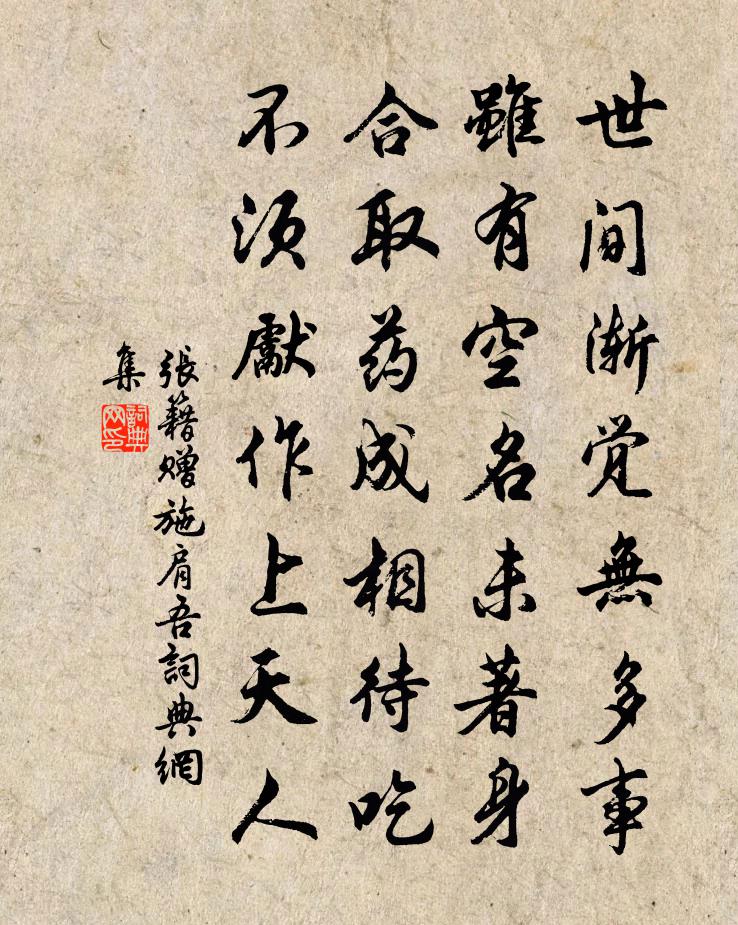 世间渐觉無多事
雖有空名未著身
合取药成相待吃
不须獻作上天人
張籍赠施肩吾詞典網
集
詞典
网印